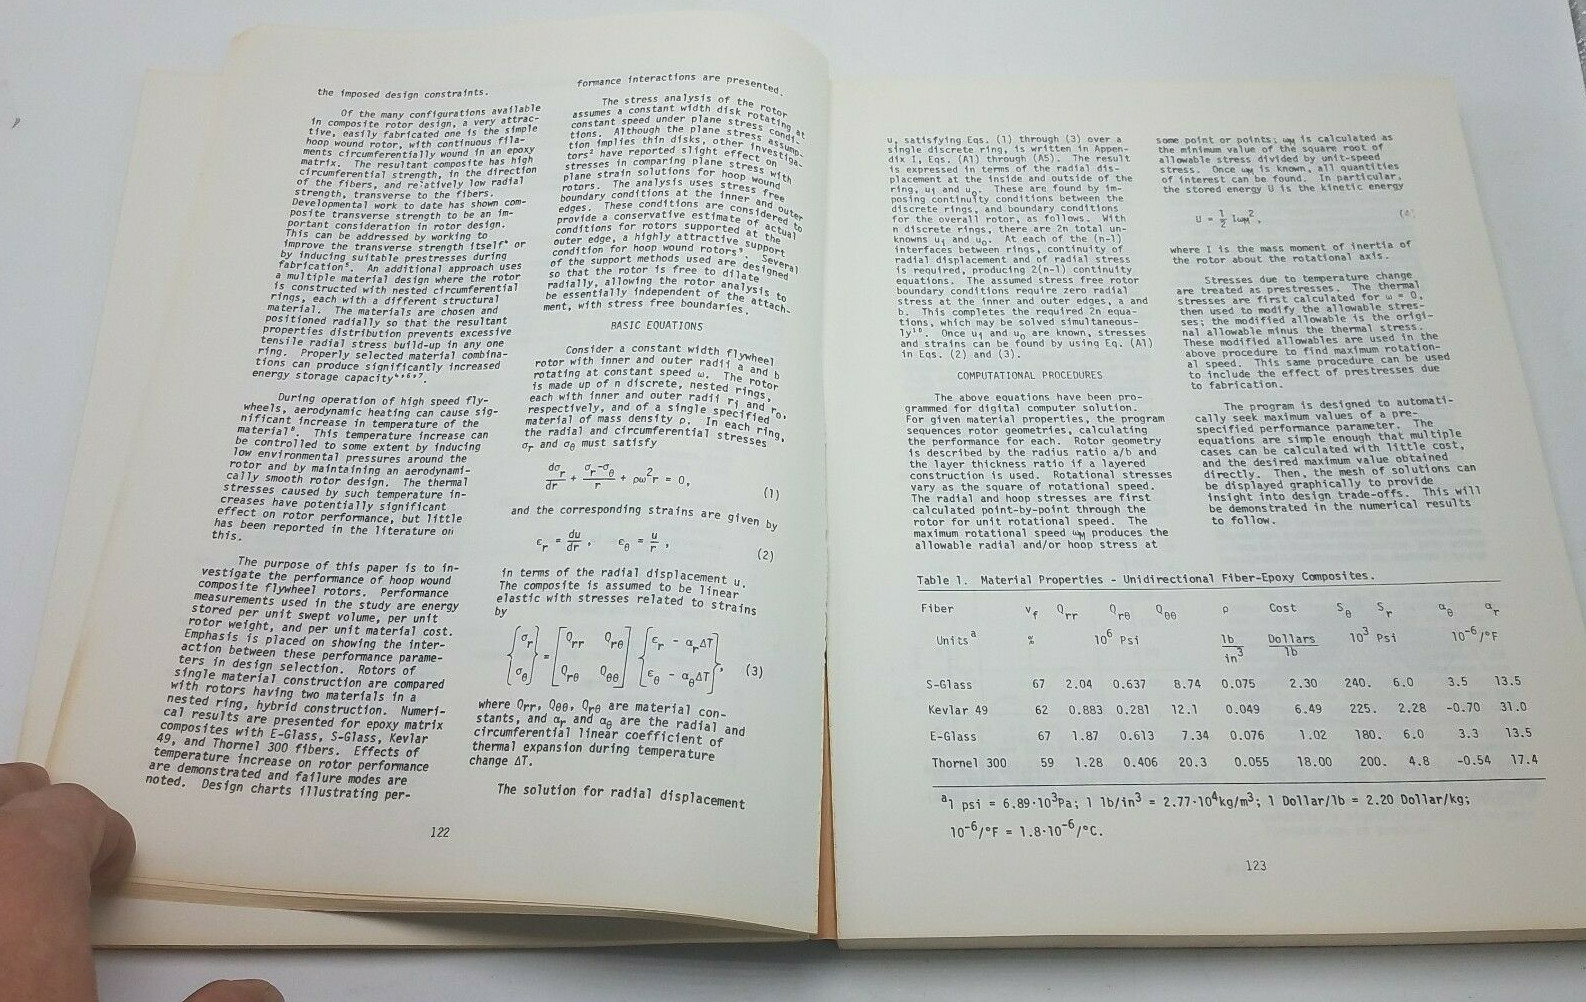 the imposed design constraints.
Of the many configurations available
in composite rotor design, a very attrac-
tive, easily fabricated one is the simple
hoop wound rotor, with continuous fila-
ments circumferentially wound in an epoxy
matrix. The resultant composite has high
circumferential strength, in the direction
of the fibers, and relatively low radial
strength, transverse to the fibers.
Developmental work to date has shown com-
posite transverse strength to be an im-
portant consideration in rotor design.
This can be addressed by working to
improve the transverse strength itself⁴ or
by inducing suitable prestresses during
fabrication⁵. An additional approach uses
a multiple material design where the rotor
is constructed with nested circumferential
rings, each with a different structural
material. The materials are chosen and
positioned radially so that the resultant
properties distribution prevents excessive
tensile radial stress build-up in any one
ring. Properly selected material combina-
tions can produce significantly increased
energy storage capacity⁴,⁶,⁷.
During operation of high speed fly-
wheels, aerodynamic heating can cause sig-
nificant increase in temperature of the
material⁸. This temperature increase can
be controlled to some extent by inducing
low environmental pressures around the
rotor and by maintaining an aerodynami-
cally smooth rotor design. The thermal
stresses caused by such temperature in-
creases have potentially significant
effect on rotor performance, but little
has been reported in the literature on
this.
The purpose of this paper is to in-
vestigate the performance of hoop wound
composite flywheel rotors. Performance
measurements used in the study are energy
stored per unit swept volume, per unit
rotor weight, and per unit material cost.
Emphasis is placed on showing the inter-
action between these performance parame-
ters in design selection. Rotors of
single material construction are compared
with rotors having two materials in a
nested ring, hybrid construction. Numeri-
cal results are presented for epoxy matrix
composites with E-Glass, S-Glass, Kevlar
49, and Thornel 300 fibers. Effects of
temperature increase on rotor performance
are demonstrated and failure modes are
noted. Design charts illustrating per-
formance interactions are presented.
The stress analysis of the rotor
assumes a constant width disk rotating at
constant speed under plane stress condi-
tions. Although the plane stress assump-
tion implies thin disks, other investiga-
tors² have reported slight effect on
stresses in comparing plane stress with
plane strain solutions for hoop wound
rotors. The analysis uses stress free
boundary conditions at the inner and outer
edges. These conditions are considered to
provide a conservative estimate of actual
conditions for rotors supported at the
outer edge, a highly attractive support
condition for hoop wound rotors⁹. Several
of the support methods used are designed
so that the rotor is free to dilate
radially, allowing the rotor analysis to
be essentially independent of the attach-
ment, with stress free boundaries.
BASIC EQUATIONS
Consider a constant width flywheel
rotor with inner and outer radii a and b
rotating at constant speed ω. The rotor
is made up of n discrete, nested rings,
each with inner and outer radii rᵢ and rₒ,
respectively, and of a single specified
material of mass density ρ. In each ring,
the radial and circumferential stresses
σr and σθ must satisfy
dσr/dr + (σr-σθ)/r + ρω²r = 0, (1)
and the corresponding strains are given by
εr = du/dr , εθ = u/r , (2)
in terms of the radial displacement u.
The composite is assumed to be linear
elastic with stresses related to strains
by
{σr σθ} = [Qrr Qrθ Qrθ Qθθ] {εr - αrΔT εθ - αθΔT}, (3)
where Qrr, Qθθ, Qrθ are material con-
stants, and αr and αθ are the radial and
circumferential linear coefficient of
thermal expansion during temperature
change ΔT.
The solution for radial displacement
122
u, satisfying Eqs. (1) through (3) over a
single discrete ring, is written in Appen-
dix I, Eqs. (A1) through (A5). The result
is expressed in terms of the radial dis-
placement at the inside and outside of the
ring, uᵢ and uₒ. These are found by im-
posing continuity conditions between the
discrete rings, and boundary conditions
for the overall rotor, as follows. With
n discrete rings, there are 2n total un-
knowns uᵢ and uₒ. At each of the (n-1)
interfaces between rings, continuity of
radial displacement and of radial stress
is required, producing 2(n-1) continuity
equations. The assumed stress free rotor
boundary conditions require zero radial
stress at the inner and outer edges, a and
b. This completes the required 2n equa-
tions, which may be solved simultaneous-
ly¹⁰. Once uᵢ and uₒ are known, stresses
and strains can be found by using Eq. (A1)
in Eqs. (2) and (3).
COMPUTATIONAL PROCEDURES
The above equations have been pro-
grammed for digital computer solution.
For given material properties, the program
sequences rotor geometries, calculating
the performance for each. Rotor geometry
is described by the radius ratio a/b and
the layer thickness ratio if a layered
construction is used. Rotational stresses
vary as the square of rotational speed.
The radial and hoop stresses are first
calculated point-by-point through the
rotor for unit rotational speed. The
maximum rotational speed ωM produces the
allowable radial and/or hoop stress at
some point or points; ωM is calculated as
the minimum value of the square root of
allowable stress divided by unit-speed
stress. Once ωM is known, all quantities
of interest can be found. In particular,
the stored energy U is the kinetic energy
U = 1/2 IωM², (4)
where I is the mass moment of inertia of
the rotor about the rotational axis.
Stresses due to temperature change
are treated as prestresses. The thermal
stresses are first calculated for ω = 0,
then used to modify the allowable stres-
ses; the modified allowable is the origi-
nal allowable minus the thermal stress.
These modified allowables are used in the
above procedure to find maximum rotation-
al speed. This same procedure can be used
to include the effect of prestresses due
to fabrication.
The program is designed to automati-
cally seek maximum values of a pre-
specified performance parameter. The
equations are simple enough that multiple
cases can be calculated with little cost,
and the desired maximum value obtained
directly. Then, the mesh of solutions can
be displayed graphically to provide
insight into design trade-offs. This will
be demonstrated in the numerical results
to follow.
Table 1. Material Properties - Unidirectional Fiber-Epoxy Composites.
Fiber vf Qrr Qrθ Qθθ ρ Cost Sθ Sr αθ αr
Unitsᵃ % 10⁶ Psi lb/in³ Dollars/lb 10³ Psi 10⁻⁶/°F
S-Glass 67 2.04 0.637 8.74 0.075 2.30 240. 6.0 3.5 13.5
Kevlar 49 62 0.883 0.281 12.1 0.049 6.49 225. 2.28 -0.70 31.0
E-Glass 67 1.87 0.613 7.34 0.076 1.02 180. 6.0 3.3 13.5
Thornel 300 59 1.28 0.406 20.3 0.055 18.00 200. 4.8 -0.54 17.4
ᵃ1 psi = 6.89·10³Pa; 1 lb/in³ = 2.77·10⁴kg/m³; 1 Dollar/lb = 2.20 Dollar/kg;
10⁻⁶/°F = 1.8·10⁻⁶/°C.
123